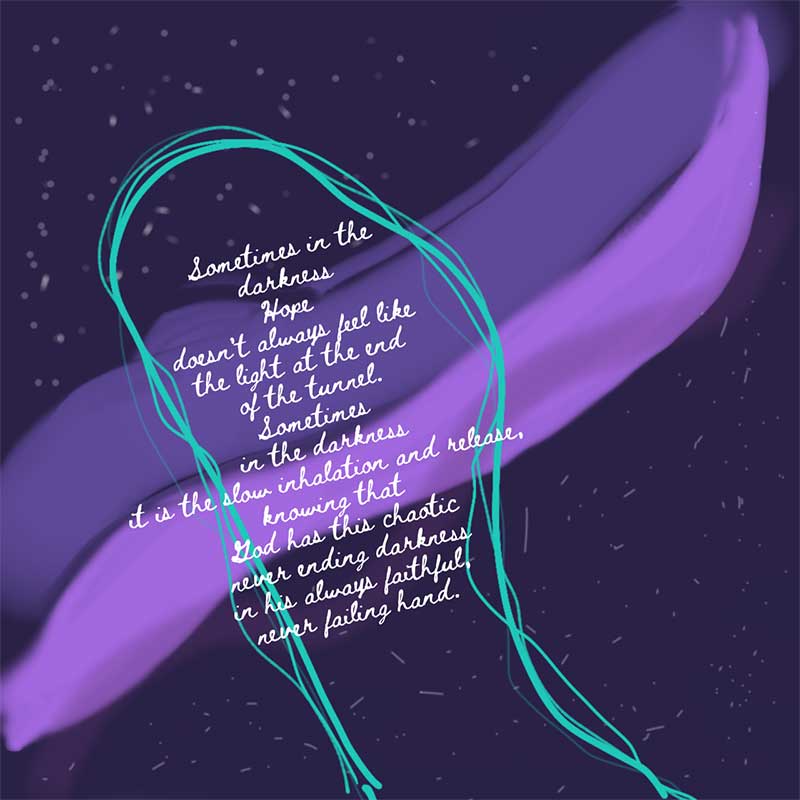 Sometimes in the
darkness
Hope
doesn't always feel like
the light at the end
of the tunnel.
Sometimes
in the darkness
it is the slow inhalation and release,
knowing that
God has this chaotic
never ending darkness
in his always faithful,
never failing hand.